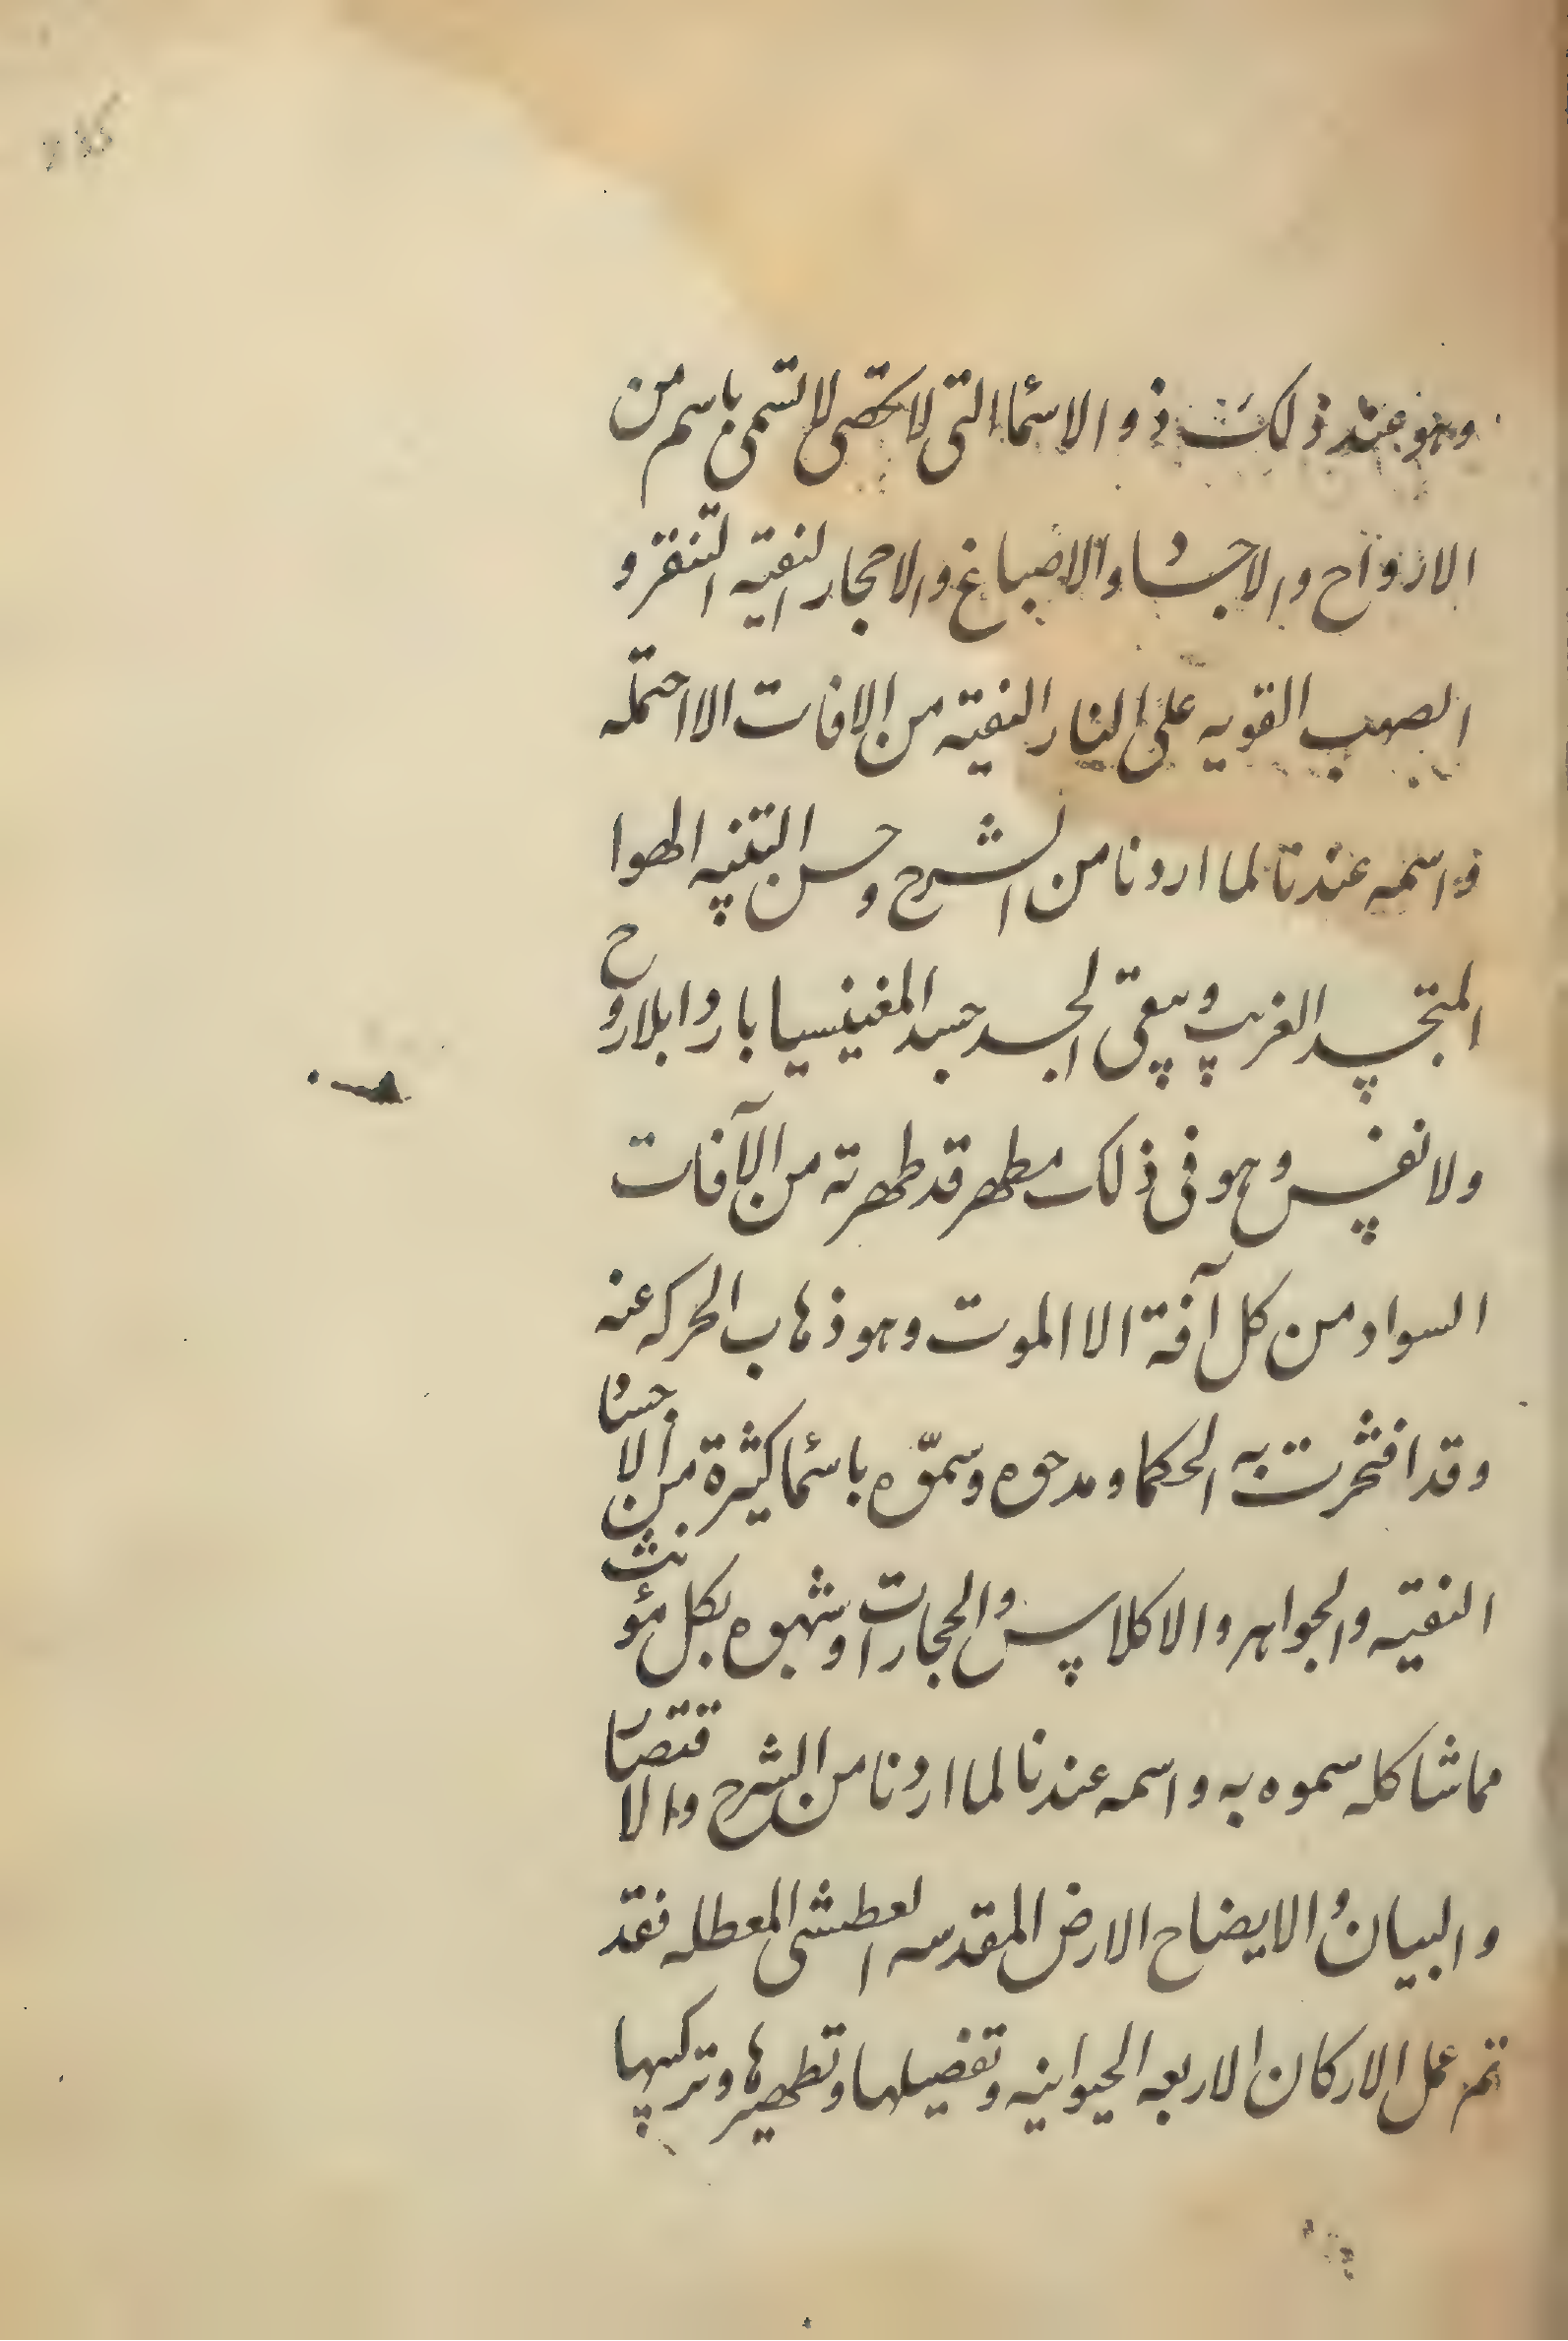 وهو عند ذلك ذو الاسما التى لا تحصى لا تسمى باسم من
الارواح والاجساد والاصباغ والاحجار النقيه
الصهب القويه على النار النقيه من الافات الا احتمله
واسمه عندنا لما اردنا من الشرح وحسن التنبيه الهوا
المتجسد الغريب ويبقى الجسد جسد المغنيسيا باردا بلا روح
ولا نفس وهو فى ذلك مطهر قد طهرته من الآفات
السواد من كل آفة الا الموت وهو ذهاب الحركه عنه
وقد افتخرت به الحكما ومدحوه وسمّوه باسما كثيرة من الاجساد
النقيه والجواهر والاكلاس والحجارات وشبهوه بكل مؤنث
مما شاكله سموه به واسمه عندنا لما اردنا من الشرح والاقتصار
والبيان والايضاح الارض المقدسه العطشى المعطله فقد
تم عمل الاركان الاربعه الحيوانيه وتفصيلها وتطهيرها وتركيبها